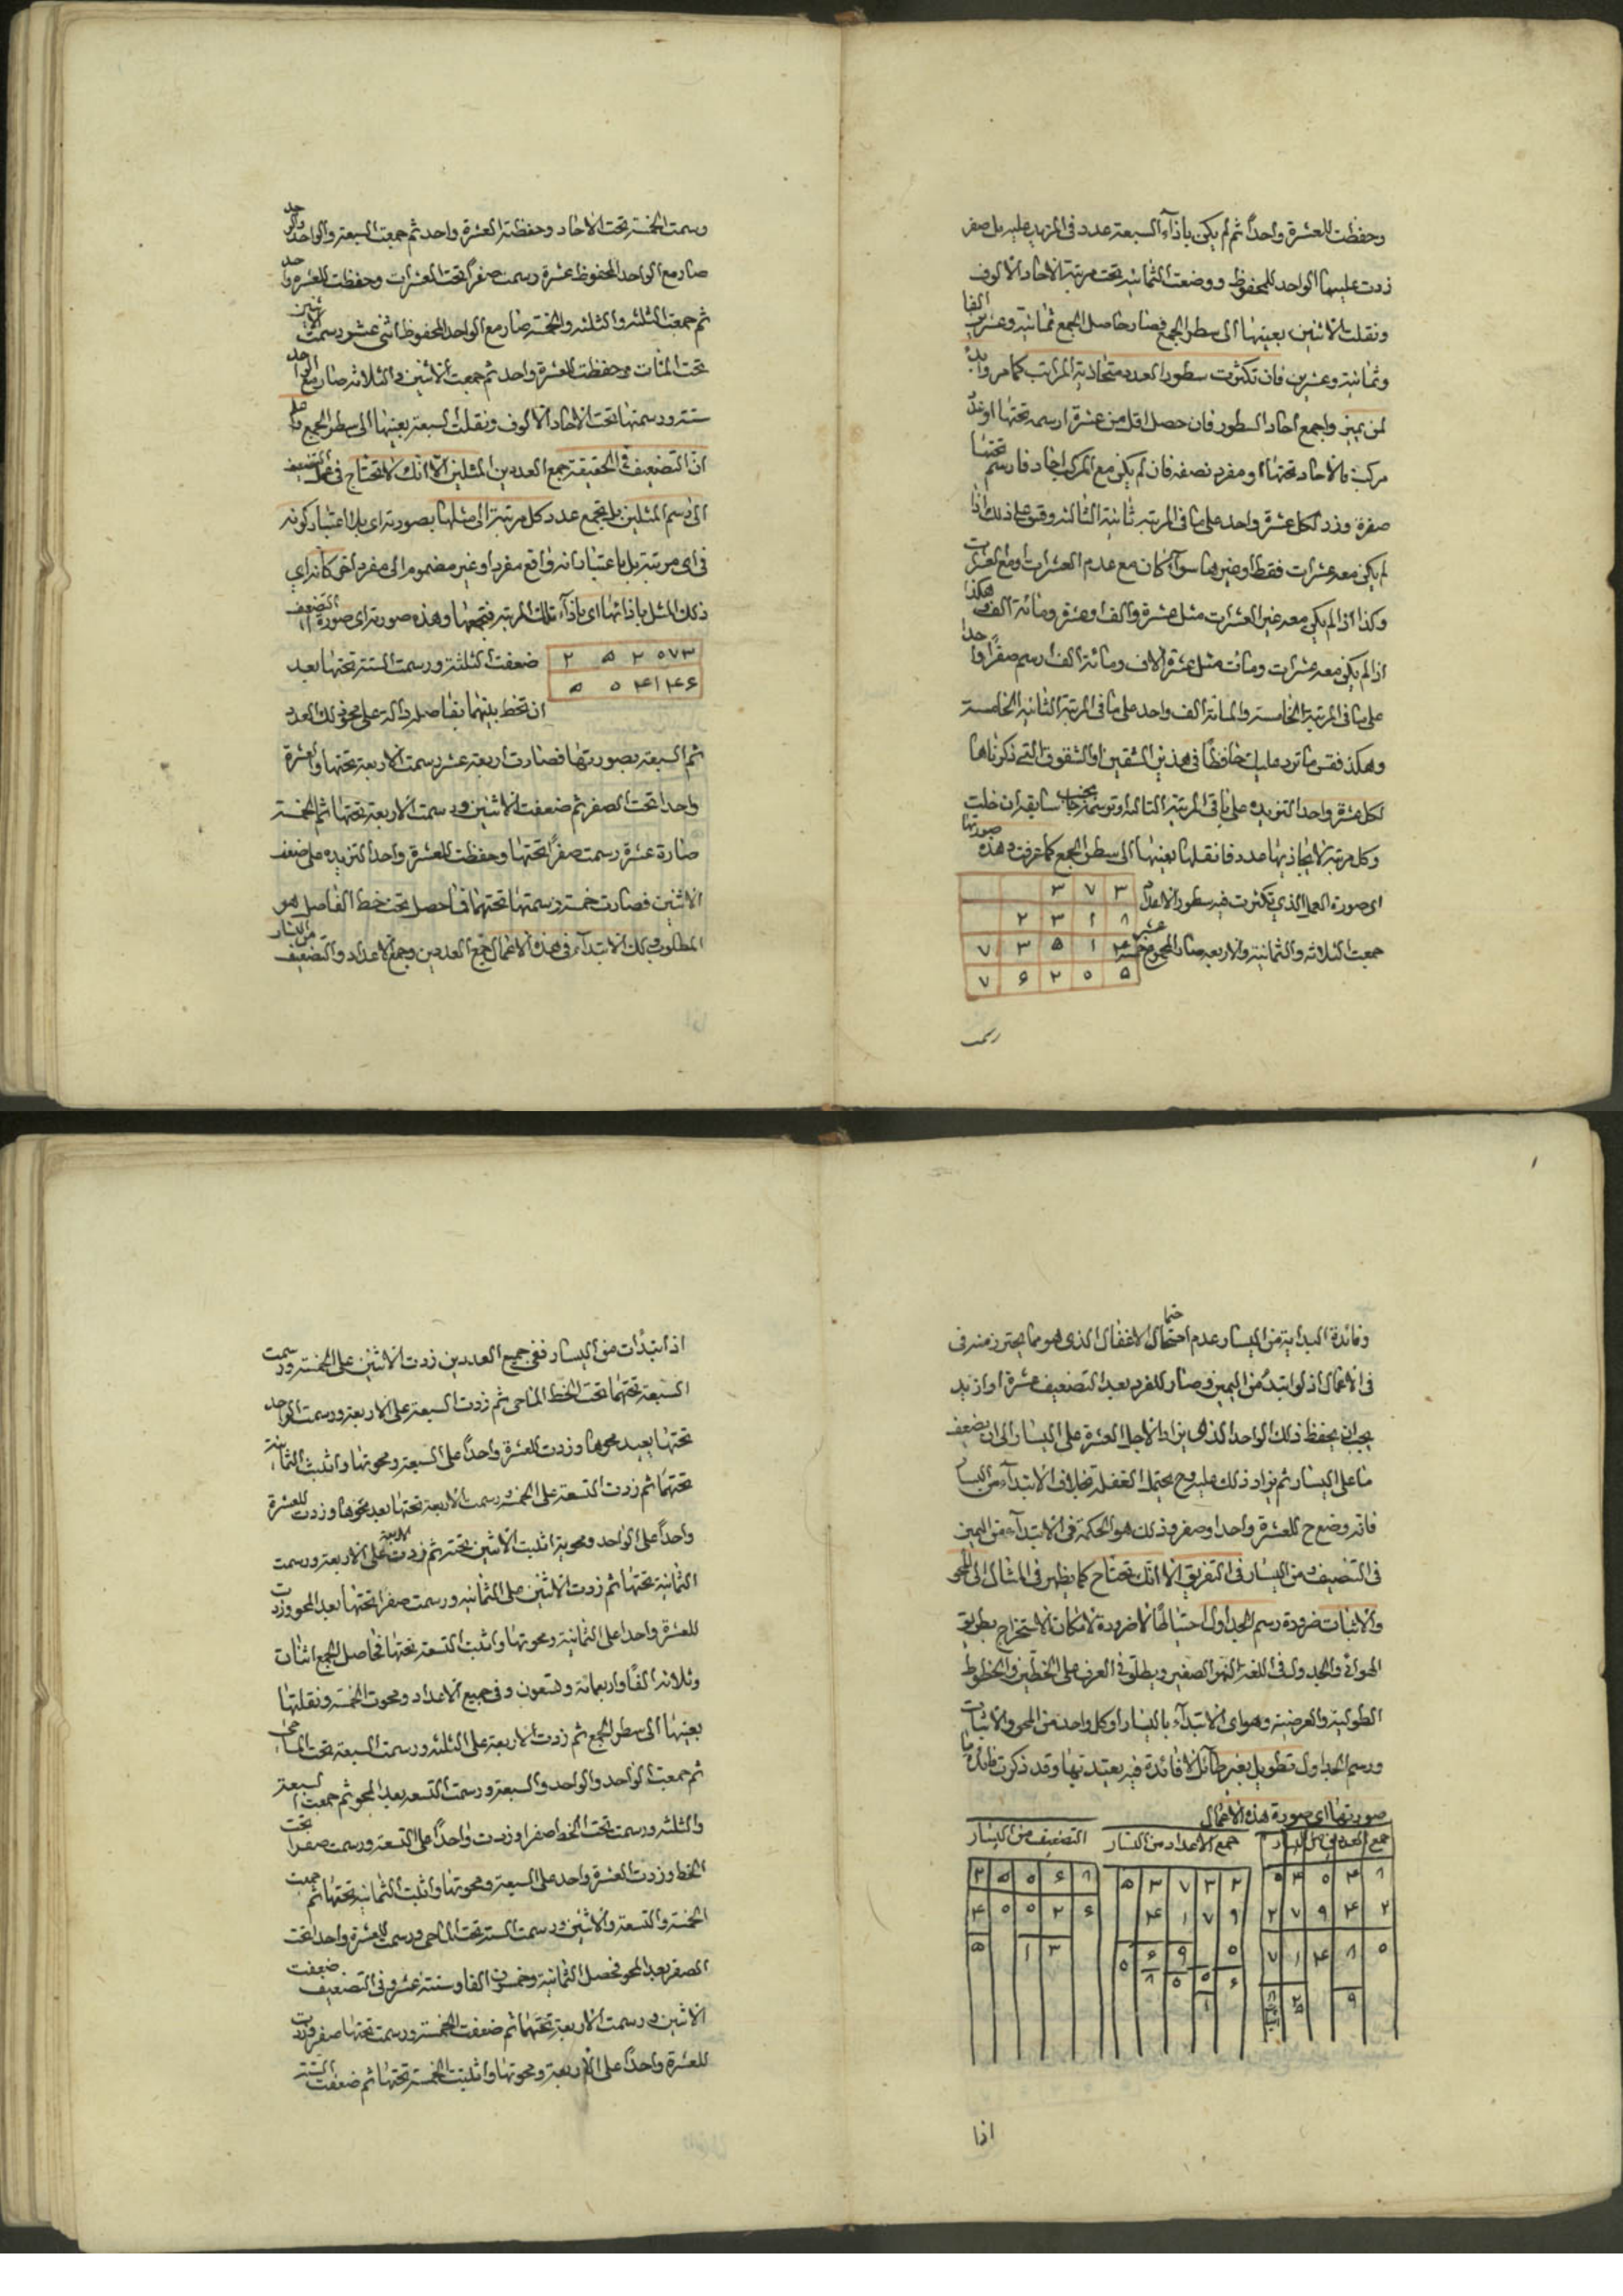 وحفظت للعشرة واحداً ثم لم يكن بازآء السبعة عدد فى المزيد عليه بل صفر
زدت عليها الواحد المحفوظ ووضعت الثمانية تحت مرتبة الاحاد الالوف
ونقلت الاثنين بعينها الى سطر الجمع فصار حاصل الجمع ثمانية وعشرين الفا
وثمانية وعشرين فان تكثرت سطور العدد متحاذية المراتب كما مر وابدء
لمن يميز واجمع احاد السطور فان حصل اقل من عشرة ارسمه تحتها او عدد
مركب فالاحاد تحتها او مفرد نصفه فان لم يكن مع المركب احاد فارسم تحتها
صفرة وزد لكل عشرة واحد على ما فى المرتبة ثانية الثالثة وقس على ذلك اذا
لم يكن معه عشرات فقط او ضربها سوآء كان مع عدم العشرات او مع العشرات
وكذا اذا لم يكن معه غير العشرات مثل عشرة والف وعشرة ومائة الف وهكذا
اذا لم يكن معه عشرات ومئات مثل عشرة الاف ومائة الف ارسم صفراً واحداً
على ما فى المرتبة الخامسة والمائة الف واحد على ما فى المرتبة الثانية الخامسة
وهكذا فقس ما ترد عليك حافظاً فى هذين الشقين او الشقوق التى ذكرناها
لكل عشرة واحدا لتزيده على ما فى المرتبة التالية او ترسمه بجنب سابقه ان خلت
وكل مرتبة لا يحاذيها عدد فانقلها بعينها الى سطر الجمع كما عرفت وهذه صورتها
اى صورة العمل الذى تكثرت فيه سطور الاعداد
جمعت الثلاثة والثمانية والاربعة صار المجموع خمسة عشر
۳ ۷ ۳
۲ ۳ ۱ ۸
۷ ۳ ۵ ۱ ۴
۷ ۶ ۲ ۰ ۵
رسمت
ورسمت الخمسة تحت الاحاد وحفظت للعشرة واحد ثم جمعت السبعة والواحد والواحد
صار مع الواحد المحفوظ عشرة ورسمت صفراً تحت العشرات وحفظت للعشرة واحد
ثم جمعت الثلثة والثلثة والخمسة صار مع الواحد المحفوظ اثنى عشر ورسمت الاثنين
تحت المئات وحفظت للعشرة واحد ثم جمعت الاثنين والثلاثة صار مع الواحد
ستة ورسمتها تحت الاحاد الالوف ونقلت السبعة بعينها الى سطر الجمع واعلم
ان التضعيف فى الحقيقة جمع العددين المثلين الا انك لا تحتاج فى عمل التضعيف
الى رسم المثلين بل تجمع عدد كل مرتبة الى مثلها بصورته اى بلا اعتبار كونه
فى اى مرتبة بل باعتبار انه واقع مفرد او غير مضموم الى مفرد اخر كانه اى
ذلك المثل بازائها اى بازآء تلك المرتبة فتجمعها وهذه صورته اى صورة التضعيف
۲ ۵ ۲ ۰ ۷ ۳
۵ ۰ ۴ ۱ ۴ ۶
ضعفت الثلثة ورسمت الستة تحتها بعد
ان تخط بينهما بفاصلة دالة على محو ذلك العدد
ثم السبعة بصورتها فصارت اربعة عشر رسمت الاربعة تحتها والعشرة
واحدا تحت الصفر ثم ضعفت الاثنين ورسمت الاربعة تحتها ثم الخمسة
صارة عشرة رسمت صفراً تحتها وحفظت للعشرة واحداً لتزيده على ضعف
الاثنين فصارت خمسة رسمتها تحتهما فما حصل تحت خط الفاصل هو
المطلوب ولك الابتدآء فى هذه الاعمال جمع العددين وجمع الاعداد والتضعيف من اليسار
وفائدة البداية من اليسار عدم احتمال الاغفال الذى هو مما يحترز منه فى
فى الاعمال اذ لو ابتدء من اليمين وصار للفرد بعد التضعيف عشرة او ازيد
يجب ان يحفظ ذلك الواحد الذى يزاد لاجل العشرة على اليسار الى ان يضعف
ما على اليسار ثم يزاد ذلك عليه وح يحتمل الغفلة بخلاف الابتدآء من اليسار
فانه وضع ح للعشرة واحدا وصفر وذلك هو الحكمة فى الابتدآء من اليمين
فى التنصيف ومن اليسار فى التفريق الا انك تحتاج كما يظهر فى المثال الى المحو
والاثبات ضرورة رسم الجداول احتياطاً لا ضرورة لامكان الاستخراج بطريق
الهوائى والجدول فى اللغة النهر الصغير ويطلق فى العرف على الخطين والخطوط
الطولية والعرضية وهو اى الابتدآء باليسار او كل واحد من المحو والاثبات
ورسم الجداول تطويل بغير طائل لا فائدة فيه يعتد بها وقد ذكرت فائدة ما
صورتها اى صورة هذه الاعمال
جمع العددين من اليسار
جمع الاعداد من اليسار
التضعيف من اليسار
اذا
اذا ابتدأت من اليسار ففى جميع العددين زدت الاثنين على الخمسة ورسمت
السبعة تحتهما تحت الخط الماحى ثم زدت السبعة على الاربعة ورسمت الواحد
تحتها بعيد محوها وزدت للعشرة واحداً على السبعة ومحوتها واثبت الثمانية
تحتهما ثم زدت التسعة على الخمسة ورسمت الاربعة تحتها بعد محوها وزدت للعشرة
واحداً على الواحد ومحوته اثبت الاثنين تحته ثم زدت الاربعة على الاربعة ورسمت
الثمانية تحتها ثم زدت الاثنين على الثمانية ورسمت صفرا تحتها بعد المحو وزدت
للعشرة واحدا على الثمانية ومحوتها واثبت التسعة تحتها فحاصل الجمع اثنان
وثلاثه الفاً واربعمائة وتسعون وفى جميع الاعداد ومحوت الخمسة ونقلتها
بعينها الى سطر الجمع ثم زدت الاربعة على الثلثة ورسمت السبعة تحت الماحى
ثم جمعت الواحد والواحد والسبعة ورسمت التسعة بعد المحو ثم جمعت السبعة
والثلثة ورسمت تحت الخط اصفرا وزدت واحداً على التسعة ورسمت صفرا تحت
الخط وزدت العشرة واحد على السبعة ومحوتها واثبت الثمانية تحتها ثم جمعت
الخمسة والتسعة والاثنين ورسمت الستة تحت الماحى ورسمت للعشرة واحدا تحت
الصفر بعد المحو فحصل الثمانية وخمسون الفا وستة عشر وفى التضعيف ضعفت
الاثنين ورسمت الاربعة تحتها ثم ضعفت الخمسة ورسمت تحتها صفر وزدت
للعشرة واحداً على الاربعة ومحوتها واثبتت الخمسة تحتها ثم ضعفت الستة